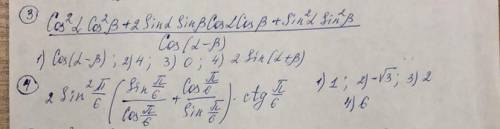 ③ Cos²α Cos²β + 2 Sinα Sinβ Cosα Cosβ + Sin²α Sin²β
Cos(α-β)
1) Cos(α-β) ; 2) 4 ; 3) 0 ; 4) 2 Sin(α+β)
④ 2 Sin² π/6 (Sin π/6 / Cos π/6 + Cos π/6 / Sin π/6) · ctg π/6 1) 1 ; 2) -√3 ; 3) 2
4) 6